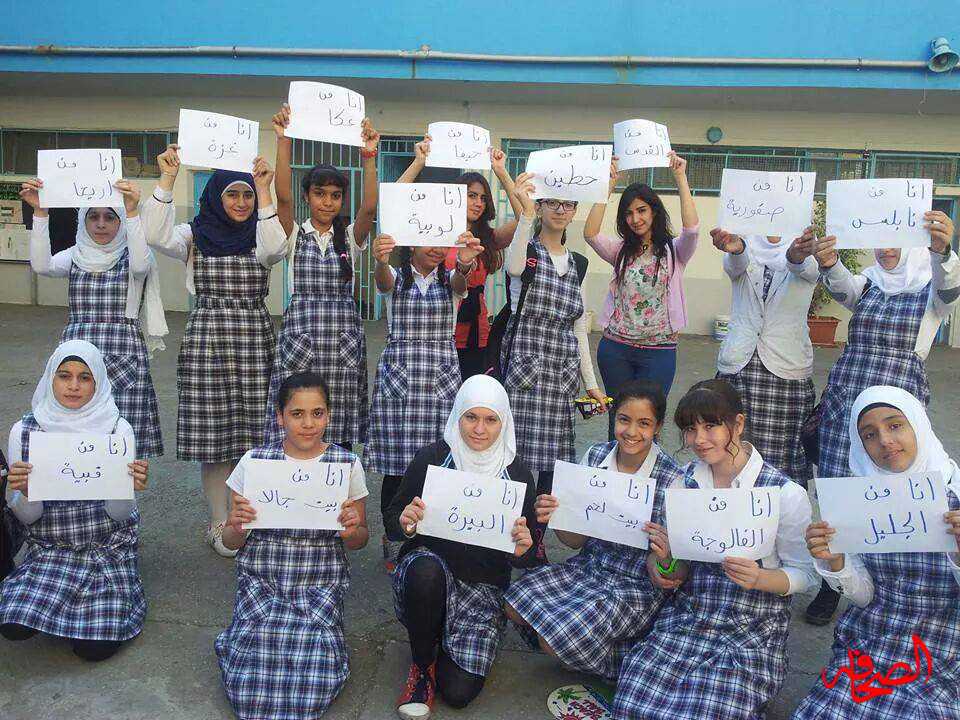 انا من
عكا
انا من
غزة
انا من
حيفا
من
القدس
انا من
حطين
انا من
اريحا
انا من
صفورية
انا من
نابلس
انا من
لوبية
انا من
قبية
انا من
بيت جالا
انا من
البيرة
انا من
بيت لحم
انا من
الفالوجة
انا من
الجليل
الصحافة